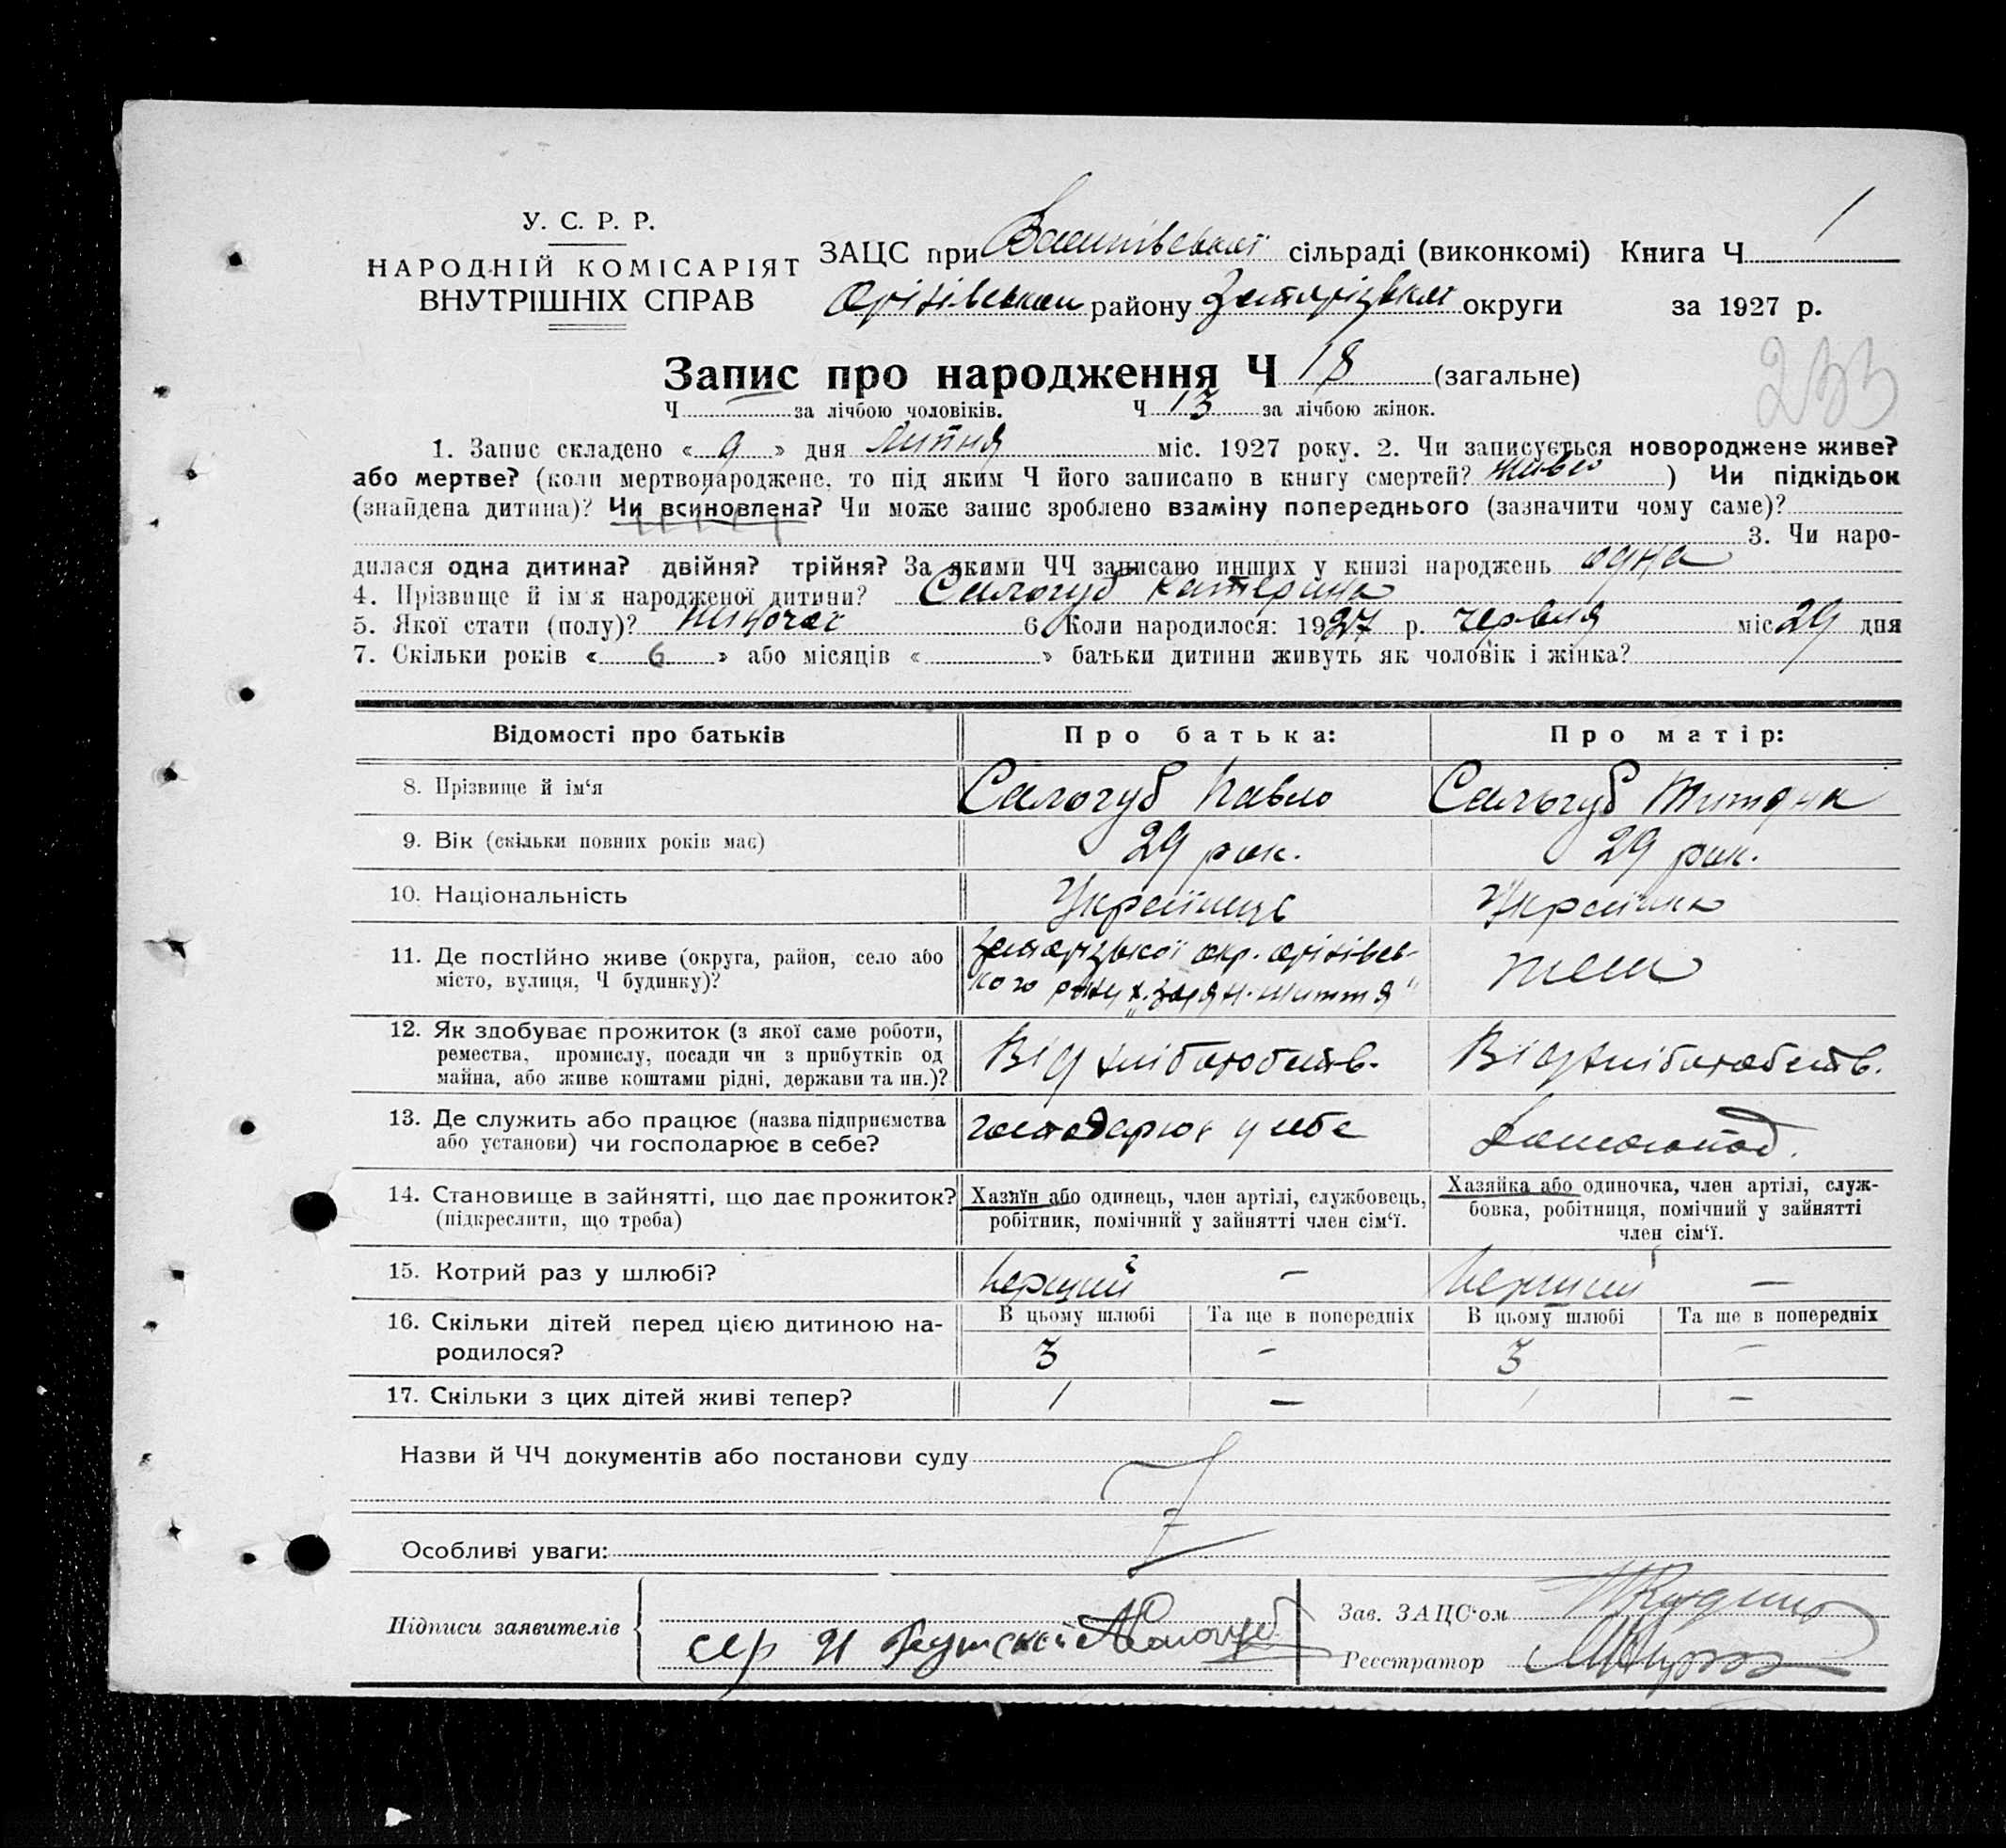 У. С. Р. Р.
НАРОДНІЙ КОМІСАРІЯТ
ВНУТРІШНІХ СПРАВ
ЗАЦС при сільраді (виконкомі) Книга Ч 1
Оріхівської району Запорізької округи за 1927 р.
Запис про народження Ч 18 (загальне)
233
Ч за лічбою чоловіків. Ч 13 за лічбою жінок.
1. Запис складено « 9 » дня Липня міс. 1927 року. 2. Чи записується новороджене живе?
або мертве? (коли мертвонароджене, то під яким Ч його записано в книгу смертей? живо ) Чи підкідьок
(знайдена дитина)? Чи всиновлена? Чи може запис зроблено взаміну попереднього (зазначити чому саме)?
3. Чи наро-
дилася одна дитина? двійня? трійня? За якими ЧЧ записано инших у книзі народжень одна
4. Прізвище й ім'я народженої дитини? Салогуб Катерина
5. Якої стати (полу)? жіночої 6. Коли народилося: 1927 р. червня міс 29 дня
7. Скільки років « 6 » або місяців « » батьки дитини живуть як чоловік і жінка?
Відомості про батьків Про батька: Про матір:
8. Прізвище й ім'я Салогуб Павло Салогуб
9. Вік (скільки повних років має) 29 рок. 29 рок.
10. Національність Українець Українка
11. Де постІйно живе (округа, район, село або Запорізької окр. Оріхівсь-
місто, вулиця, Ч будинку)? кого рону х. життя" там
12. Як здобуває прожиток (з якої саме роботи,
ремества, промислу, посади чи з прибутків од Від хліборобств. Від хліборобств.
майна, або живе коштами рідні, держави та ин.)?
13. Де служить або працює (назва підприємства господарює у себе
або установи) чи господарює в себе? Домогопод.
14. Становище в зайнятті, що дає прожиток? Хазяїн або одинець, член артілі, службовець, Хазяйка або одиночка, член артілі, служ-
(підкреслити, що треба) робітник, помічний у зайнятті член сім'ї. бовка, робітниця, помічний у зайнятті
член сім'ї.
15. Котрий раз у шлюбі? перший – перший –
16. Скільки дітей перед цією дитиною на- В цьому шлюбі Та ще в попередніх В цьому шлюбі Та ще в попередніх
родилося? 3 – 3 –
17. Скільки з цих дітей живі тепер? 1 – 1 –
Назви й ЧЧ документів або постанови суду
Особливі уваги:
Підписи заявителів
Зав. ЗАЦС'ом
Реєстратор